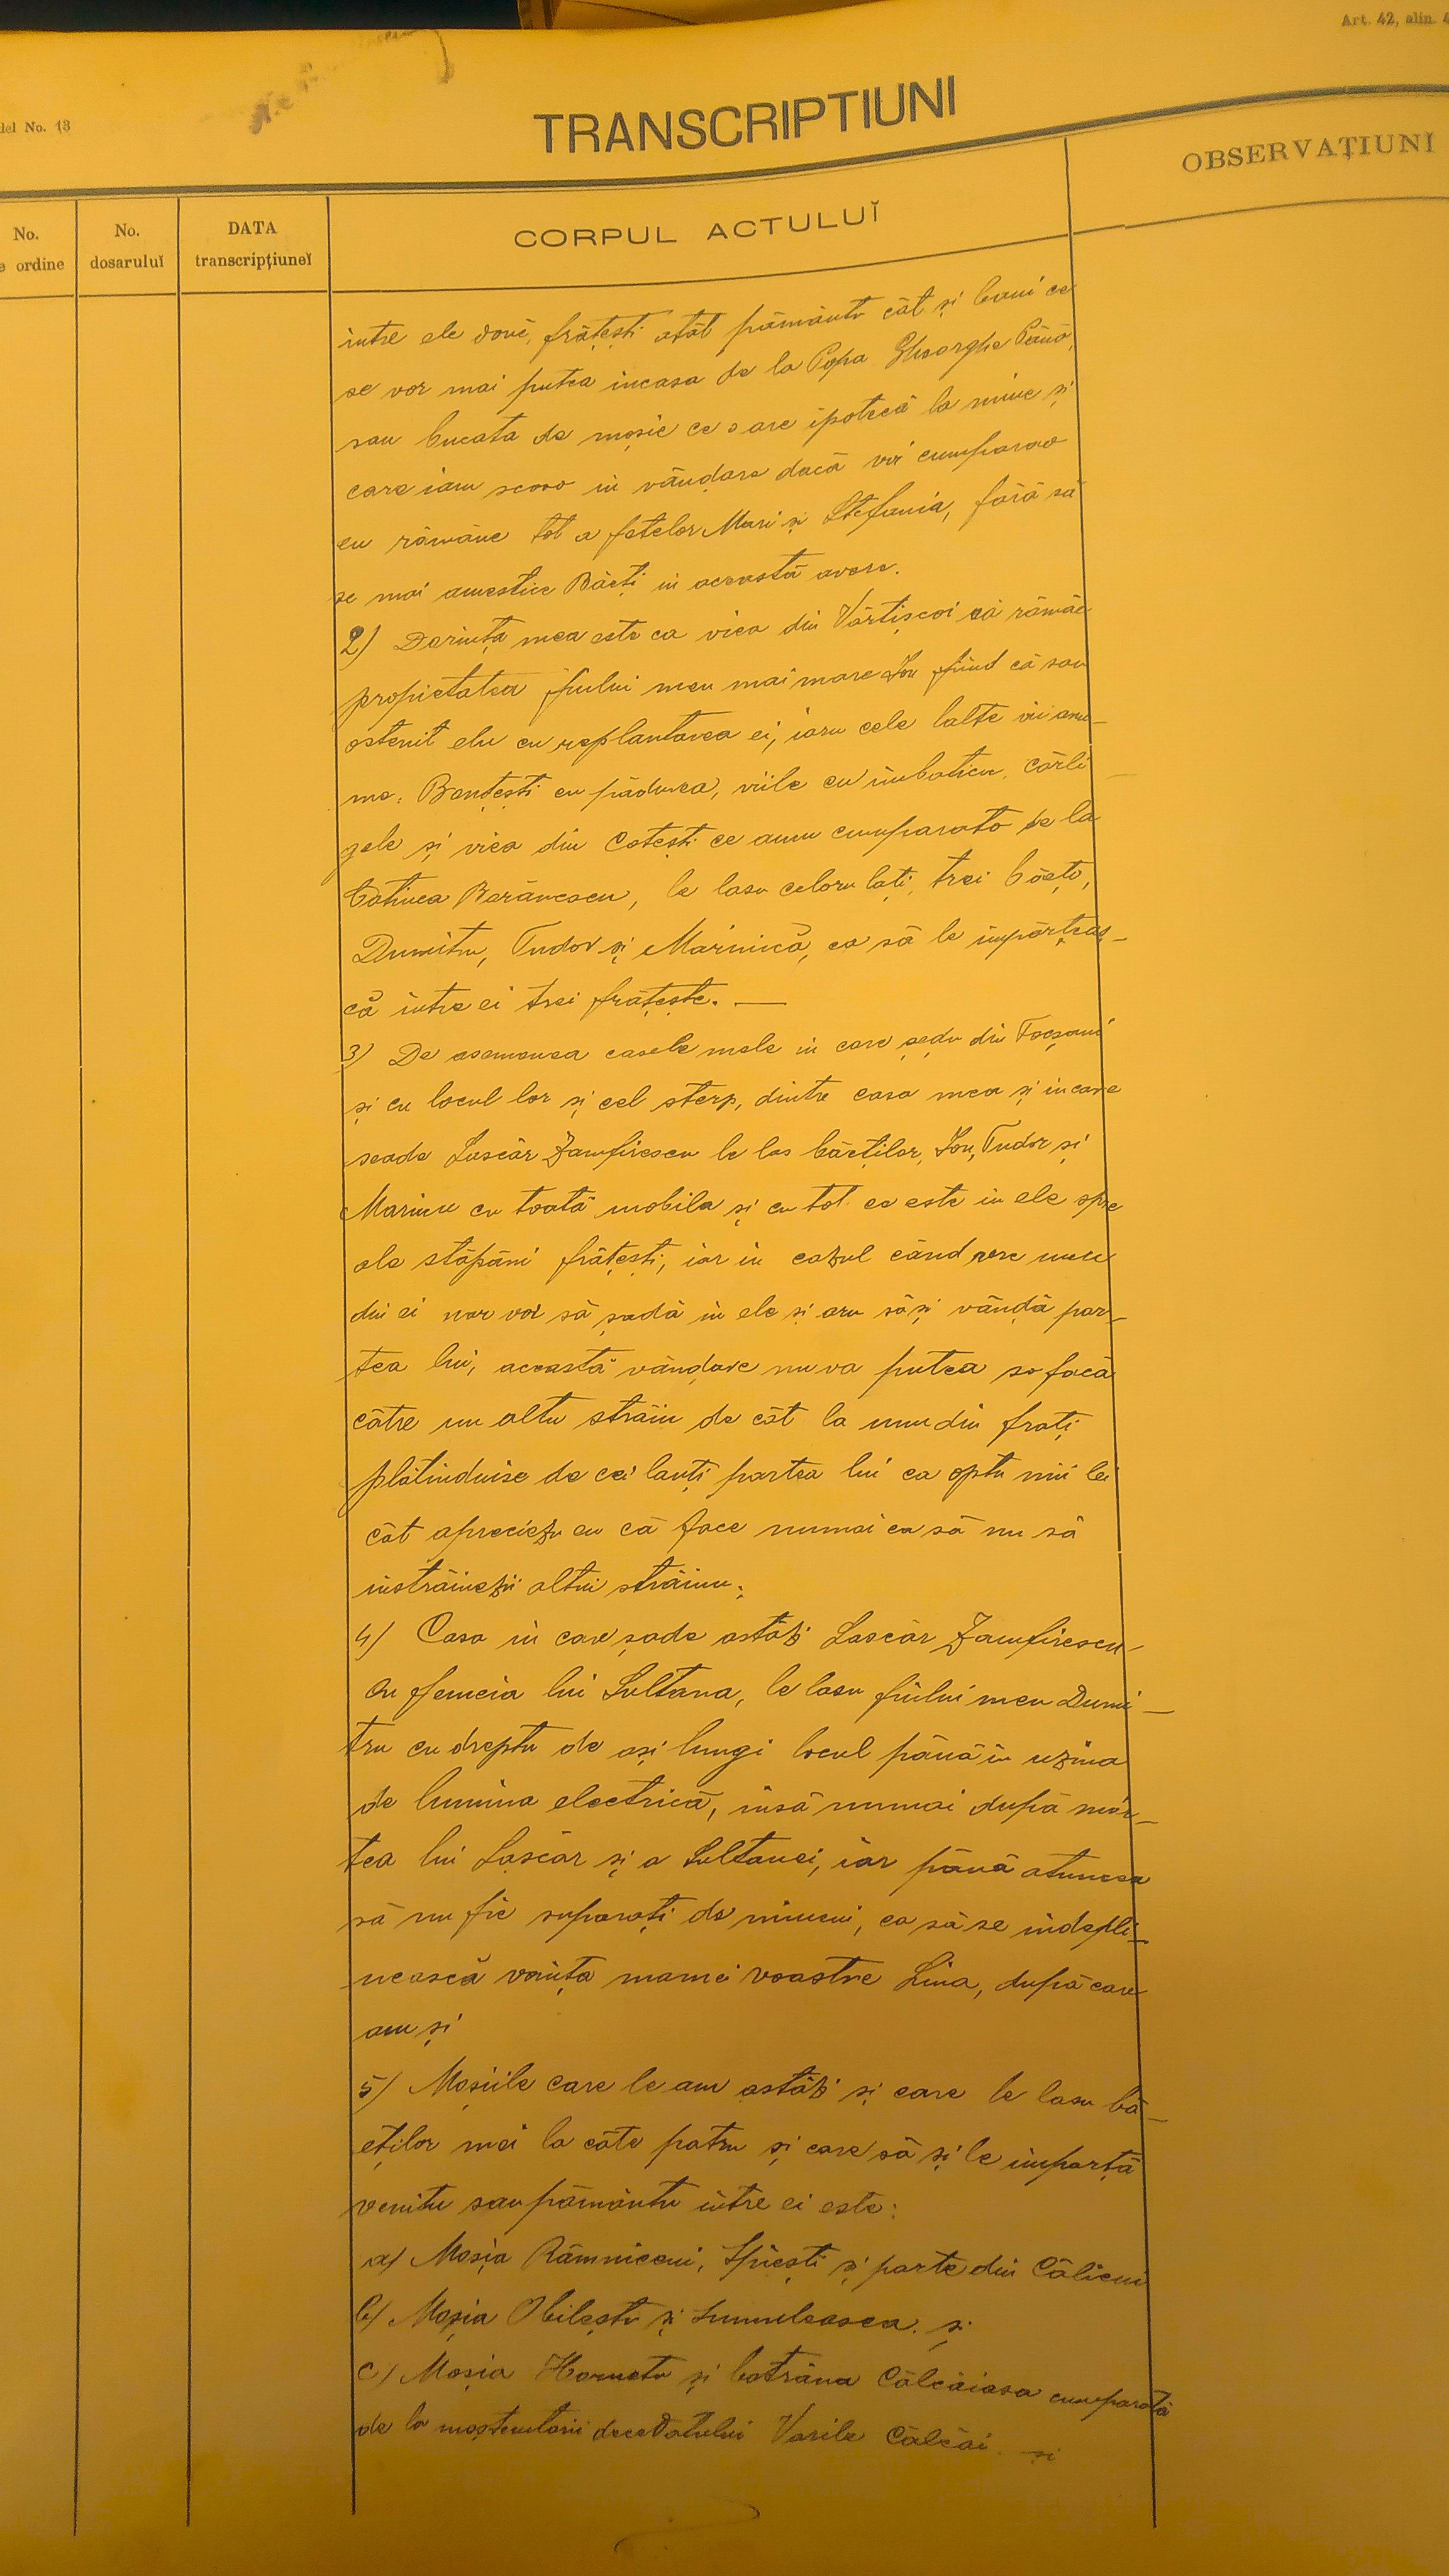 Art. 42, alin. 4
del No. 13
TRANSCRIPTIUNI
OBSERVAŢIUNI
No.
e ordine
No.
dosaruluĭ
DATA
transcripţiuneĭ
CORPUL ACTULUĬ
intre ele două, frățești atât pământu cât și banii ce
se vor mai putea incasa de la Popa Gheorghe Pană,
sau bucata de moșie ce o are ipotecă la mine și
care iam scoso in vânḑare dacă voi cumparao
eu rămâne tot a fetelor Mari și Stefania, fără să
se mai amestice Băeți in această avere.
2) Dorința mea este ca viea din Vârtișcoi să rămâe
propietatea fiului meu mai mare Ion fiind că sau
ostenit elu cu replantarea ei, iaru cele lalte vii anu-
me: Bontești cu pădurea, viile cu imbaticu, cârli-
gele și viea din Cotești ce amu cumparato de la
Catinca Barâncescu, le lasu celoru lați trei băeți,
Dumitru, Tudor și Marinică, ca să le imparțeas-
că intre ei trei frățește. —
3) De asemenea casele mele in care șędu din Focșani
și cu locul lor și cel sterp, dintre casa mea și in care
seade Lascăr Zamfirescu le las băeților, Ion, Tudor și
Marinu cu toată mobila și cu tot ce este in ele spre
ale stăpâni frățești, iar in cazul când vre unu
din ei nar voi să șadă in ele și aru săși vânḑă par-
tea lui, această vânḑare nu va putea so facă
către un altu străin de cât la unu din frați
plătinduise de cei lanți partea lui ca optu mii lei
cât apreciezu eu că face numai ca să nu să
instrăinezii altui străinu;
4) Casa in care șade astăzi Lascăr Zamfirescu
cu femeia lui Sultana, le lasu fiului meu Dumi-
tru cu dreptu de ași lungi locul până in uzina
de lumina electrică, insă numai după mór-
tea lui Lascăr și a Sultanei, iar până atuncea
să nu fie suparați de nimeni, ca să se indepli-
nească voința mamei voastre Lina, după care
am și
5) Moșiile care le am astăzi și care le lasu bă-
eților mei la câte patru și care să și le imparță
venitu sau pământu intre ei este:
a) Moșia Râmniceni, Spiești și parte din Călieni
b) Moșia Obileștu și Lumuleasca. și
c) Moșia Hornetu și batrâna Călcâiasa cumparată
de la moștenitorii decedatului Vasile Călcâi și